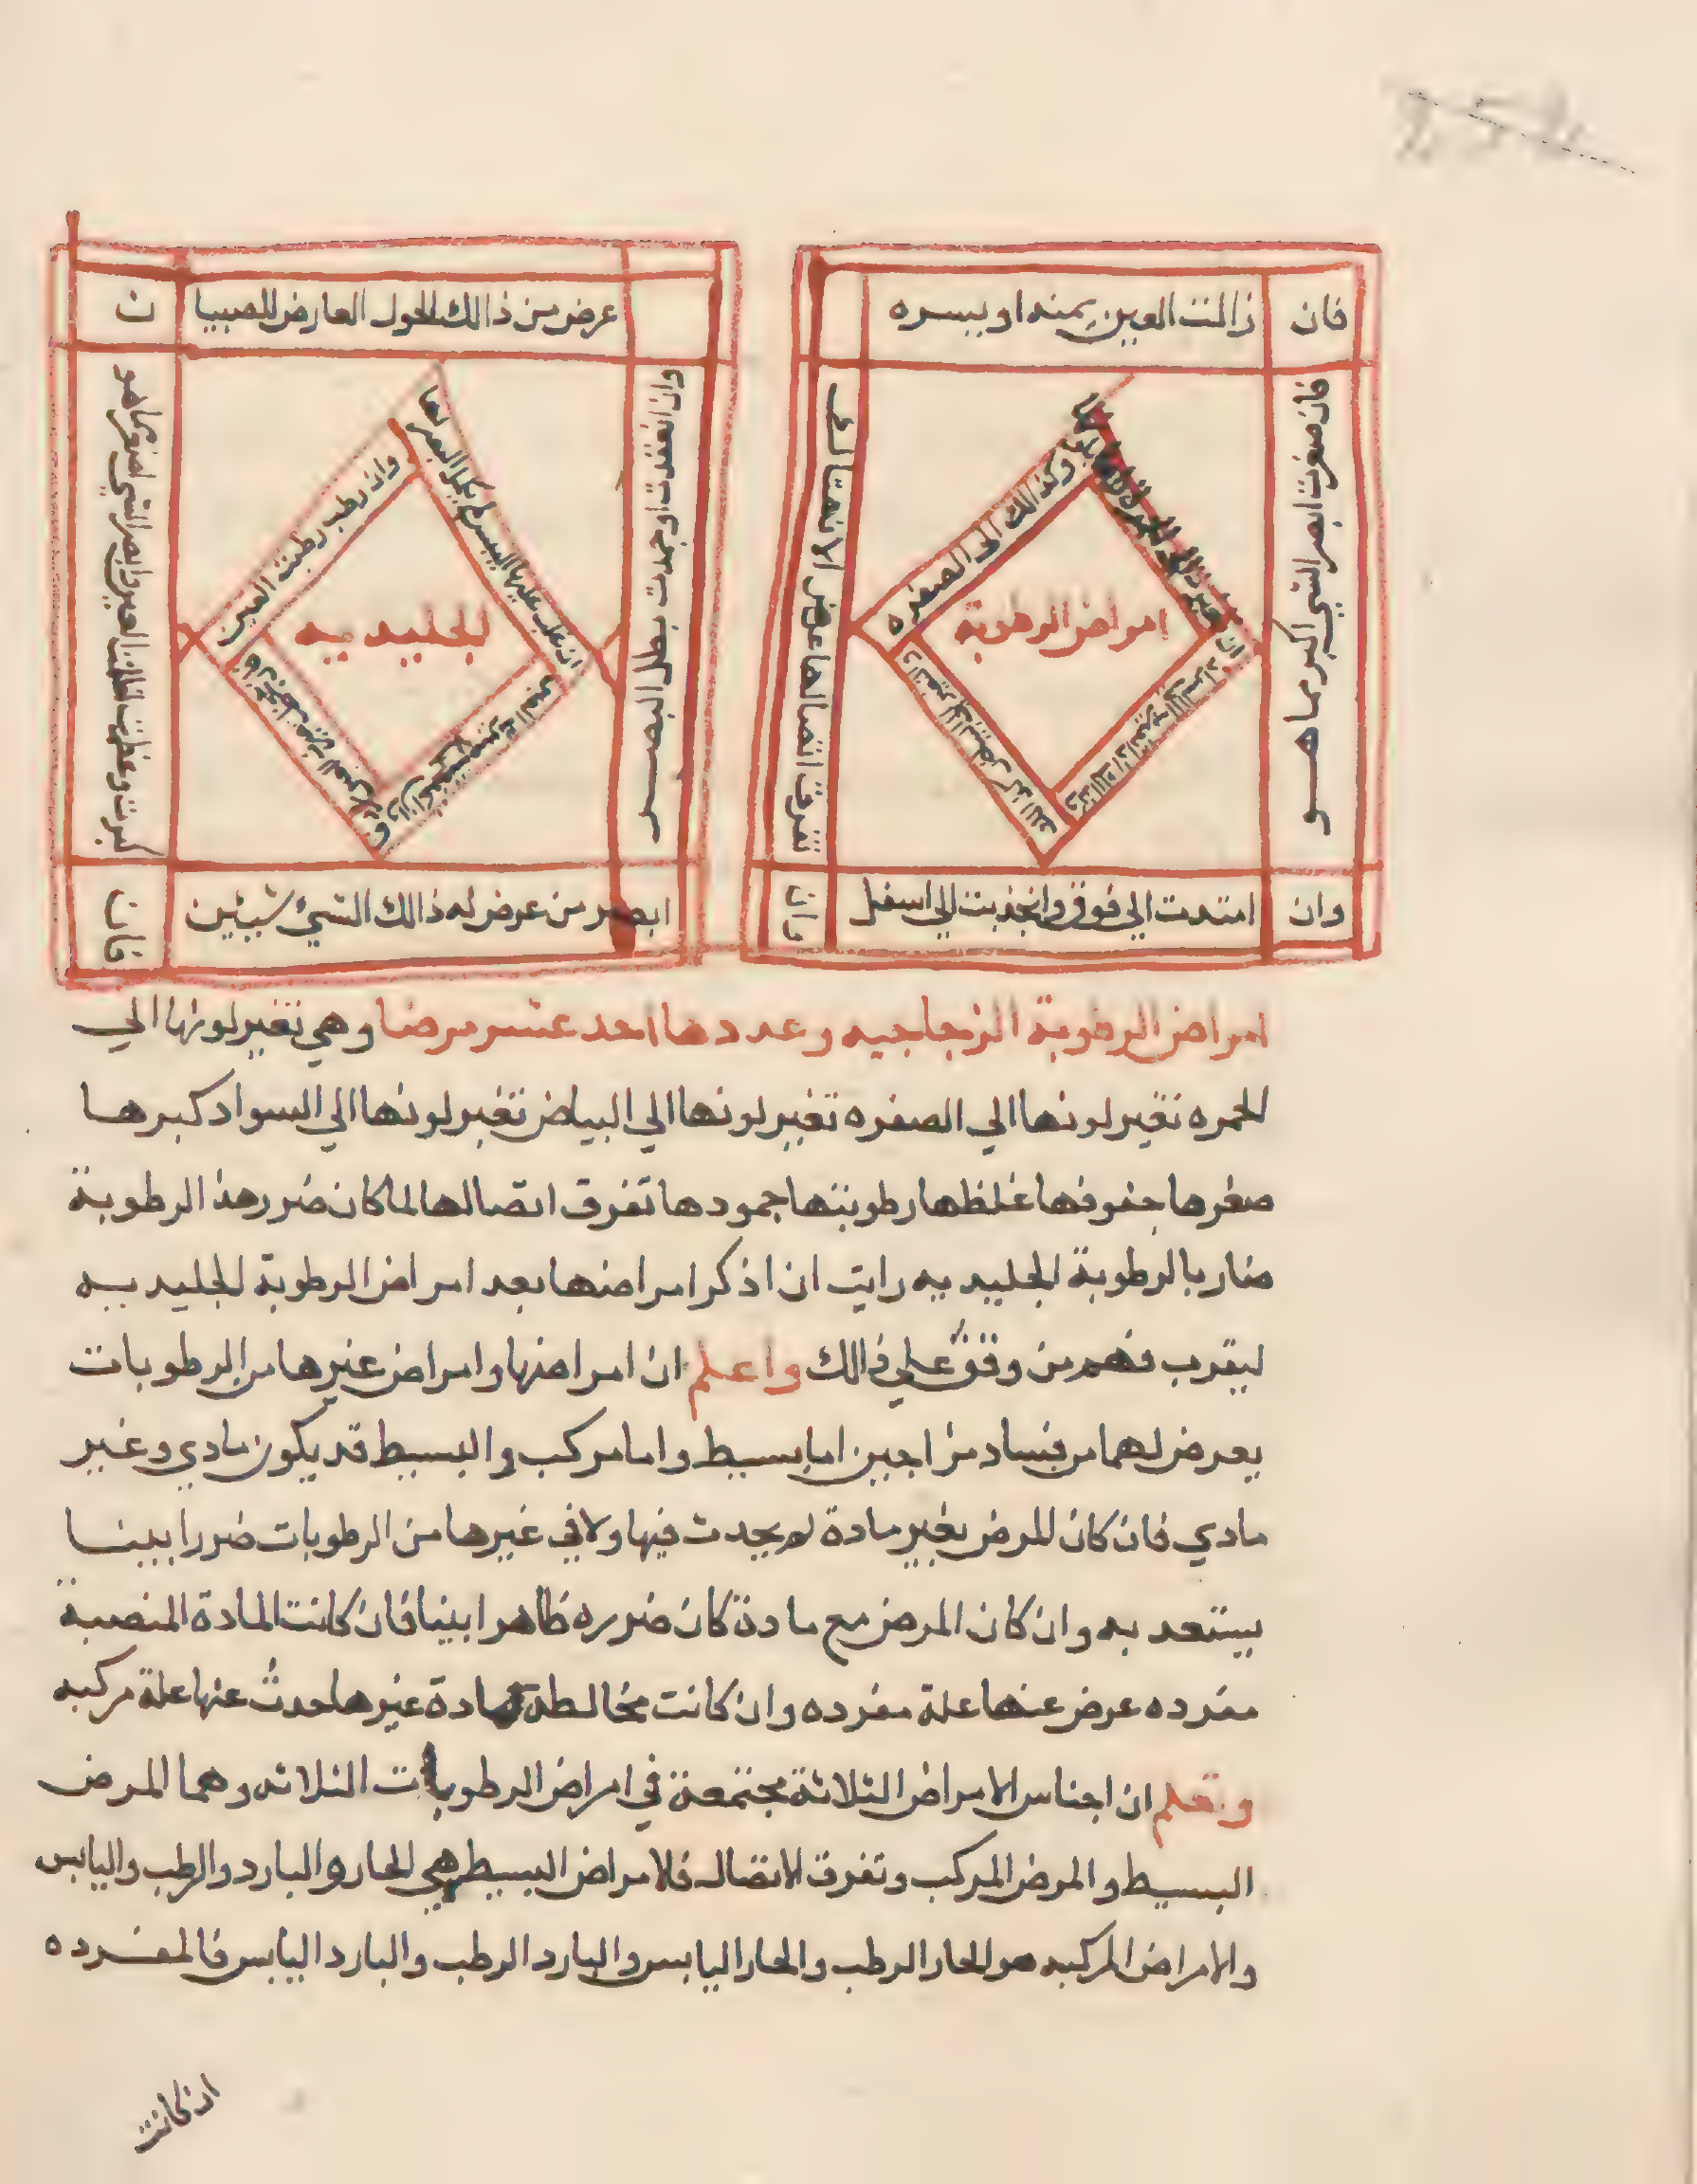 فان زالت العين يمنه او يسره
فان صغرت ابصر الشي اكبر مما هو
وان امتدت الي فوق وانجذبت الي اسفل
وان تفرقت اتصالها عرض الانهتالف
وكذالك الي الصفره
امراض الرطوبة
عرض من ذالك الحول العارض للصبيا ن
وان انعقدت او جمدت بطل البصر
ابصر من عرض له ذالك الشيء شيئين
فان كبرت وغلظت
وان رطب رطبت العين
الجليديه
امراض الرطوبة الزجاجيه وعددها احد عشر مرضا وهي تغير لونها الي
الحمره تغير لونها الي الصفره تغير لونها الي البياض تغير لونها الي السواد كبرها
صغرها جفوفها غلظها رطوبتها جمودها تفرق اتصالها لما كان ضرر هذ الرطوبة
ضار بالرطوبة الجليديه رايت ان اذكر امراضها بعد امراض الرطوبة الجليديه
ليقرب فهم من وقف علي ذالك واعلم ان امراضها وامراض غيرها من الرطوبات
يعرض لهما من فساد مزاجين اما بسيط واما مركب والبسيط قد يكون مادي وغير
مادي فان كان المرض بغير مادة لم يحدث فيها ولا في غيرها من الرطوبات ضررا بينا
يستعد به وان كان المرض مع مادة كان ضرره ظاهرا بينا فان كانت المادة المنصبة
مفرده عرض عنها علة مفرده وان كانت مخالطة مادة غيرها حدث عنها علة مركبه
وتعلم ان اجناس الامراض الثلاثة مجتمعة في امراض الرطوبات الثلاثه وهما المرض
البسيط والمرض المركب وتفرق الاتصال فلامراض البسيط هي الحار والبارد والرطب واليابس
والامراض المركبه هو الحار الرطب والحار اليابس والبارد الرطب والبارد اليابس فالمفرده
ان كانت